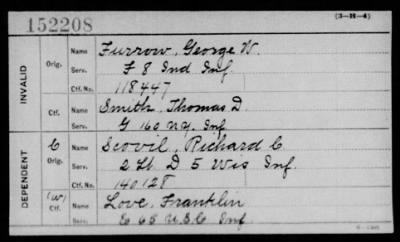 152208
(3-H-4)
INVALID
Orig. Name Furrow, George W.
Serv. F 8 Ind Inf.
Ctf. No. 118447
Ctf. Name Smith, Thomas D.
Serv. G 160 N.Y. Inf
DEPENDENT
C Orig. Name Scovil, Richard C
Serv. 2 Lt. D 5 Wis Inf.
Ctf. No. 140128
(W) Ctf. Name Love, Franklin
Serv. E 68 U.S.C Inf.